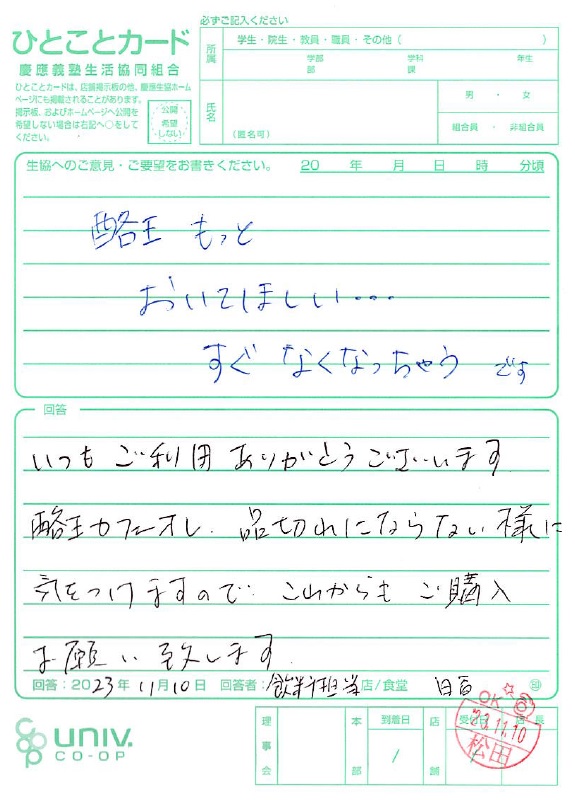 必ずご記入ください
ひとことカード
慶應義塾生活協同組合
ひとことカードは、店舗掲示板の他、慶應生協ホームページにも掲載されることがあります。
掲示板、およびホームページへ公開を
希望しない場合は右記へ○をして
ください。
公開
希望
しない
所属
学生・院生・教員・職員・その他( )
学部 学科 年
部 課
氏名
(匿名可)
男・女
組合員・非組合員
生協へのご意見・ご要望をお書きください。 20 年 月 日 時 分頃
酪王 もっと
おいてほしい・・・
すぐ なくなっちゃう です
回答
いつも ご利用 ありがとうございます
酪王カフェオレ、品切れにならない様に
気をつけますので これからも ご購入
お願い致します
回答:2023年 11月10日 回答者:飲料担当店/食堂
印
OK
'23.11.10
松田
univ.
CO-OP
理事会
本部
到着日
/
店舗
受付日
店長